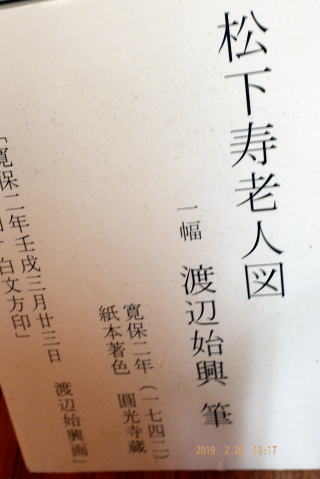 松下寿老人図
一幅 渡辺始興 筆
寛保二年(一七四二)
紙本著色 圓光寺蔵
「寛保二年壬戌三月廿三日 渡辺始興画」
白文方印」
2019. 2.20 13:17